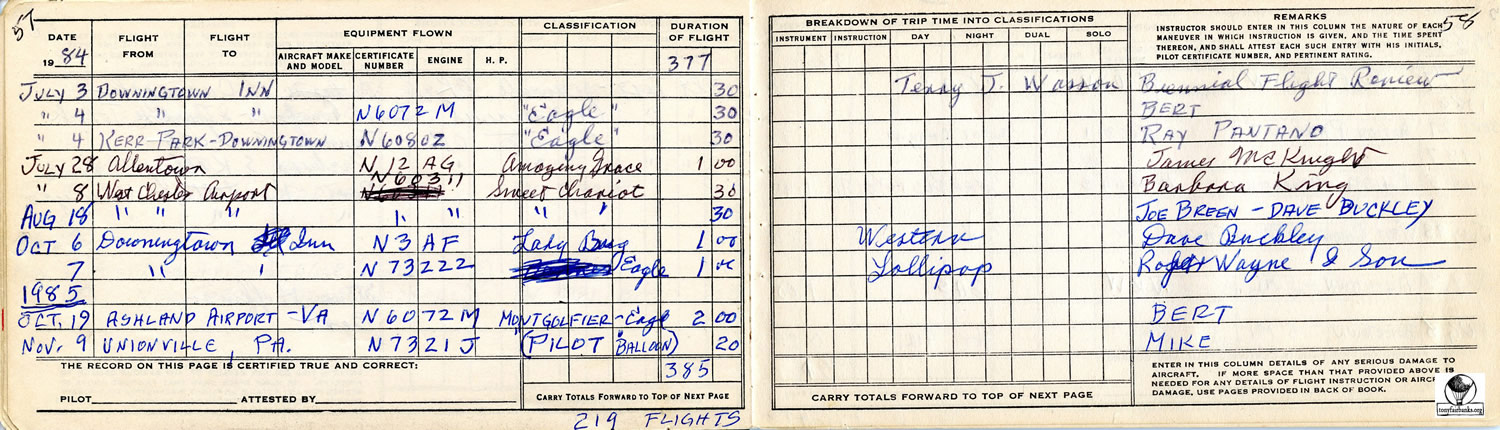 57
DATE
19 84
FLIGHT FROM
FLIGHT TO
EQUIPMENT FLOWN
AIRCRAFT MAKE AND MODEL
CERTIFICATE NUMBER
ENGINE
H. P.
CLASSIFICATION
DURATION OF FLIGHT
377
JULY 3 DOWNINGTOWN INN 30
" 4 " " N6072M "Eagle" 30
" 4 KERR-PARK-DOWNINGTOWN N6080Z "Eagle" 30
JULY 28 Allentown N12AG Amazing Grace 1 00
" 8 West Chester Airport N6031J Sweet Chariot 30
AUG 18 " " " " " " " 30
OCT 6 Downingtown Inn N3AF Lady Bug 1 00
7 " " N73222 Eagle 1 00
1985
OCT. 19 ASHLAND AIRPORT - VA N6072M MONTGOLFIER - Eagle 2 00
NOV. 9 UNIONVILLE, PA. N7321J (PILOT "BALLOON) 20
THE RECORD ON THIS PAGE IS CERTIFIED TRUE AND CORRECT:
385
PILOT ATTESTED BY
CARRY TOTALS FORWARD TO TOP OF NEXT PAGE
219 FLIGHTS
58
BREAKDOWN OF TRIP TIME INTO CLASSIFICATIONS
INSTRUMENT INSTRUCTION DAY NIGHT DUAL SOLO
REMARKS
INSTRUCTOR SHOULD ENTER IN THIS COLUMN THE NATURE OF EACH
MANEUVER IN WHICH INSTRUCTION IS GIVEN, AND THE TIME SPENT
THEREON, AND SHALL ATTEST EACH SUCH ENTRY WITH HIS INITIALS,
PILOT CERTIFICATE NUMBER, AND PERTINENT RATING.
Terry J. Wasson Biennial Flight Review
BERT
RAY PANTANO
James McKnight
Barbara King
JOE BREEN - DAVE BUCKLEY
Western Dave Buckley
Lollipop Wayne & Son
BERT
MIKE
CARRY TOTALS FORWARD TO TOP OF NEXT PAGE
ENTER IN THIS COLUMN DETAILS OF ANY SERIOUS DAMAGE TO
AIRCRAFT. IF MORE SPACE THAN THAT PROVIDED ABOVE IS
NEEDED FOR ANY DETAILS OF FLIGHT INSTRUCTION OR AIRCRAFT
DAMAGE, USE PAGES PROVIDED IN BACK OF BOOK.
tonyfairbanks.org